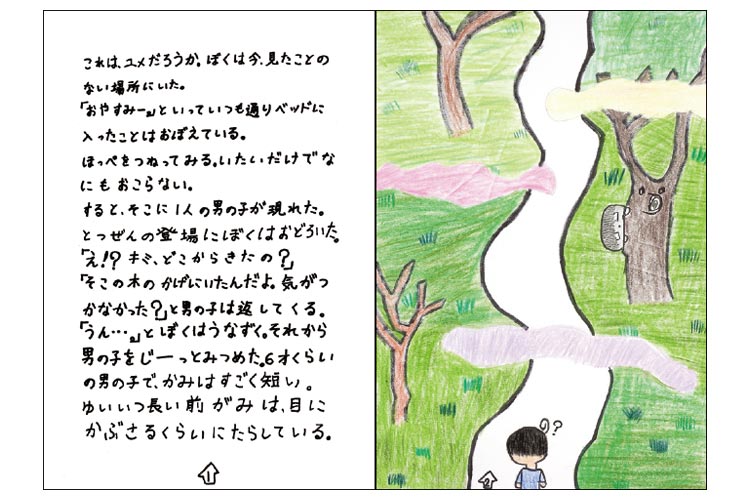 これは、ユメだろうか。ぼくは今、見たことの
ない場所にいた。
「おやすみー。」といっていつも通りベッドに
入ったことはおぼえている。
ほっぺをつねってみる。いたいだけでな
にもおこらない。
すると、そこに1人の男の子が現れた。
とつぜんの登場にぼくはおどろいた。
「え!?キミ、どこからきたの?」
「そこの木のかげにいたんだよ。気がつ
かなかった?」と男の子は返してくる。
「うん…。」とぼくはうなずく。それから
男の子をじーっとみつめた。6才くらい
の男の子で、かみはすごく短い。
ゆいいつ長い前がみは、目に
かぶさるくらいにたらしている。
1
?
2